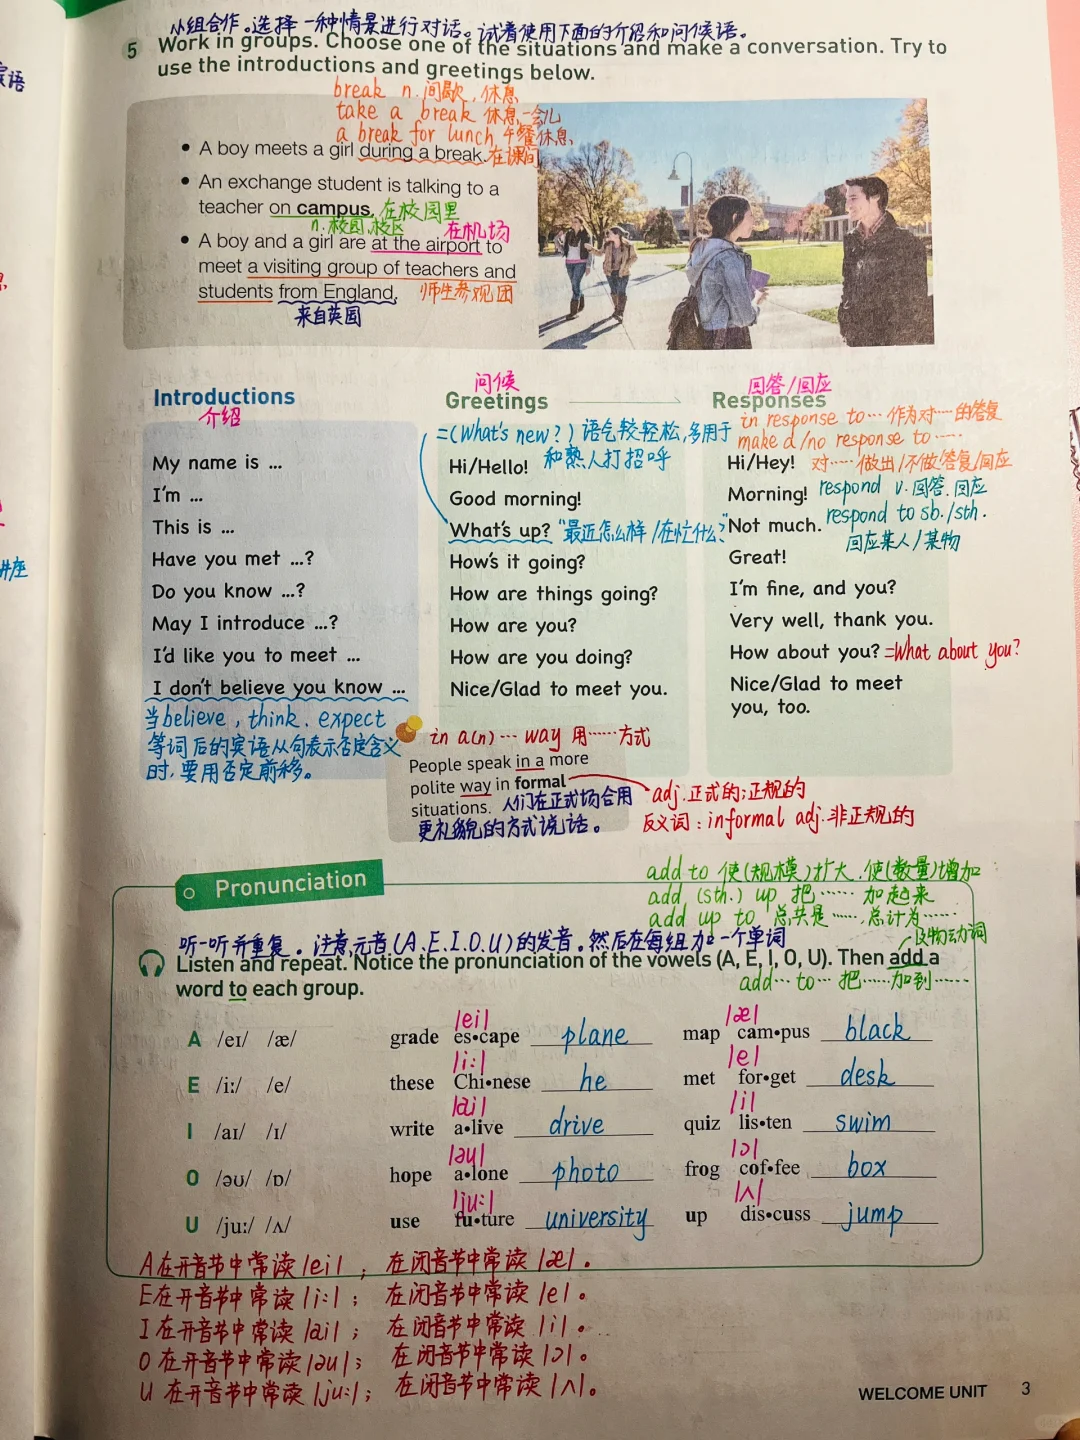 小组合作。选择一种情景进行对话。试着使用下面的介绍和问候语。
5 Work in groups. Choose one of the situations and make a conversation. Try to
use the introductions and greetings below.
break n.间歇,休息
take a break 休息一会儿
a break for lunch 午餐休息
• A boy meets a girl during a break. 在课间
• An exchange student is talking to a
teacher on campus. 在校园里
n.校园,校区 在机场
• A boy and a girl are at the airport to
meet a visiting group of teachers and
students from England. 师生参观团
来自英国
Introductions
介绍
My name is ...
I'm ...
This is ...
Have you met ...?
Do you know ...?
May I introduce ...?
I'd like you to meet ...
I don't believe you know ...
当believe, think. expect
等词后的宾语从句表示否定含义
时,要用否定前移。
问候
Greetings
=(What's new?) 语气较轻松,多用于
和熟人打招呼
Hi/Hello!
Good morning!
What's up? "最近怎么样/在忙什么?"
How's it going?
How are things going?
How are you?
How are you doing?
Nice/Glad to meet you.
回答/回应
Responses
in response to… 作为对……的答复
make a/no response to ……
对……做出/不做答复/回应
Hi/Hey!
Morning! respond v.回答.回应
Not much. respond to sb./sth.
回应某人/某物
Great!
I'm fine, and you?
Very well, thank you.
How about you? =What about you?
Nice/Glad to meet
you, too.
in a(n) … way 用……方式
People speak in a more
polite way in formal
situations. 人们在正式场合用
更礼貌的方式说话。
adj.正式的;正规的
反义词: informal adj.非正规的
add to 使(规模)扩大.使(数量)增加
add (sth.) up 把…… 加起来
add up to 总共是……,总计为……
Pronunciation
听一听并重复。注意元音(A.E.I.O.U)的发音。然后在每组加一个单词
及物动词
Listen and repeat. Notice the pronunciation of the vowels (A, E, I, O, U). Then add a
word to each group.
add… to … 把……加到……
|ei| |æ|
A /eɪ/ /æ/ grade es•cape plane map cam•pus black
|i:| |e|
E /i:/ /e/ these Chi•nese he met for•get desk
|ai| |i|
I /aɪ/ /ɪ/ write a•live drive quiz lis•ten swim
|əu| |ɔ|
O /əʊ/ /ɒ/ hope a•lone photo frog cof•fee box
|ju:| |ʌ|
U /ju:/ /ʌ/ use fu•ture university up dis•cuss jump
A在开音节中常读|ei| ; 在闭音节中常读|æ|。
E在开音节中常读|i:| ; 在闭音节中常读|e|。
I在开音节中常读|ai| ; 在闭音节中常读|i|。
O在开音节中常读|əu| ; 在闭音节中常读|ɔ|。
U在开音节中常读|ju:| ; 在闭音节中常读|ʌ|。
WELCOME UNIT 3